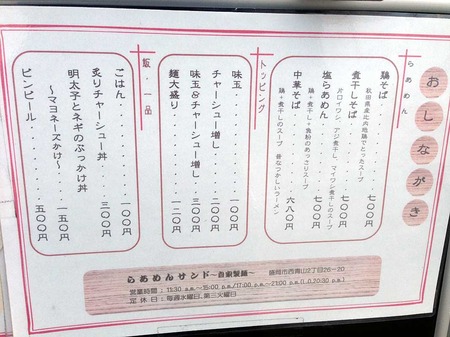 おしながき
らあめん
鶏そば・・・・・・・・・七〇〇円
秋田県産比内地鶏でとったスープ
煮干しそば・・・・・・・七〇〇円
片口イワシ、アジ煮干し、マイワシ煮干しのスープ
塩らあめん・・・・・・・七〇〇円
鶏+煮干し+魚粉のあっさりスープ
中華そば・・・・・・・・六八〇円
鶏+煮干しのスープ 昔なつかしいラーメン
トッピング
味玉・・・・・・・・・・一〇〇円
チャーシュー増し・・・・二〇〇円
味玉&チャーシュー増し・・二六〇円
麺大盛り・・・・・・・・一二〇円
飯・一品
ごはん・・・・・・・・・一〇〇円
炙りチャーシュー丼・・・三〇〇円
明太子とネギのぶっかけ丼
~マヨネーズかけ~・・・一五〇円
ビンビール・・・・・・・五〇〇円
らあめんサンド~自家製麺~ 盛岡市西青山2丁目26-20
営業時間:11:30 a.m.~15:00 p.m./17:00 p.m.~21:00 p.m.(L.O.20:30 p.m.)
定休日:毎週水曜日、第三火曜日